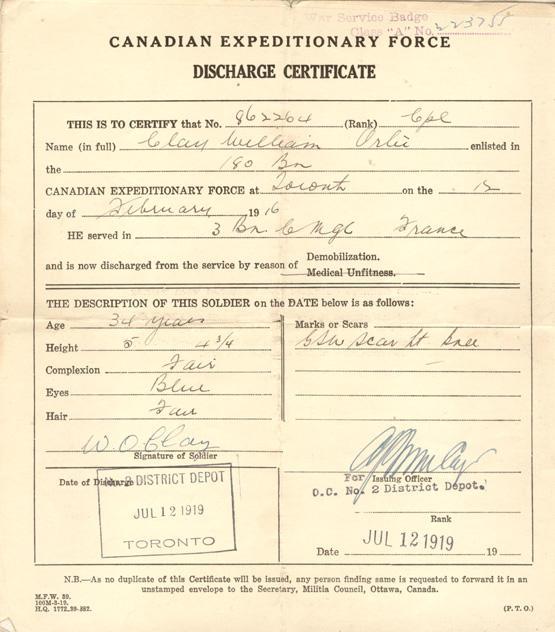 War Service Badge
Class "A" No. 223755
CANADIAN EXPEDITIONARY FORCE
DISCHARGE CERTIFICATE
THIS IS TO CERTIFY that No. 862264 (Rank) Cpl
Name (in full) Clay William Orlie enlisted in
the 180 Bn
CANADIAN EXPEDITIONARY FORCE at Toronto on the 12
day of February 1916
HE served in 3 Bn. C M G C France
and is now discharged from the service by reason of Demobilization.
Medical Unfitness.
THE DESCRIPTION OF THIS SOLDIER on the DATE below is as follows:
Age 34 years
Height 5 4 3/4
Complexion Fair
Eyes Blue
Hair Fair
Marks or Scars
GSW scar Lt knee
W. O Clay
Signature of Soldier
Date of Discharge
No. 2 DISTRICT DEPOT
JUL 12 1919
TORONTO
For Issuing Officer
O.C. No. 2 District Depot.
Rank
Date JUL 12 1919 19
N.B.—As no duplicate of this Certificate will be issued, any person finding same is requested to forward it in an
unstamped envelope to the Secretary, Militia Council, Ottawa, Canada.
M.F.W. 39.
100M-3-19.
H.Q. 1772-39-882.
(P. T. O.)